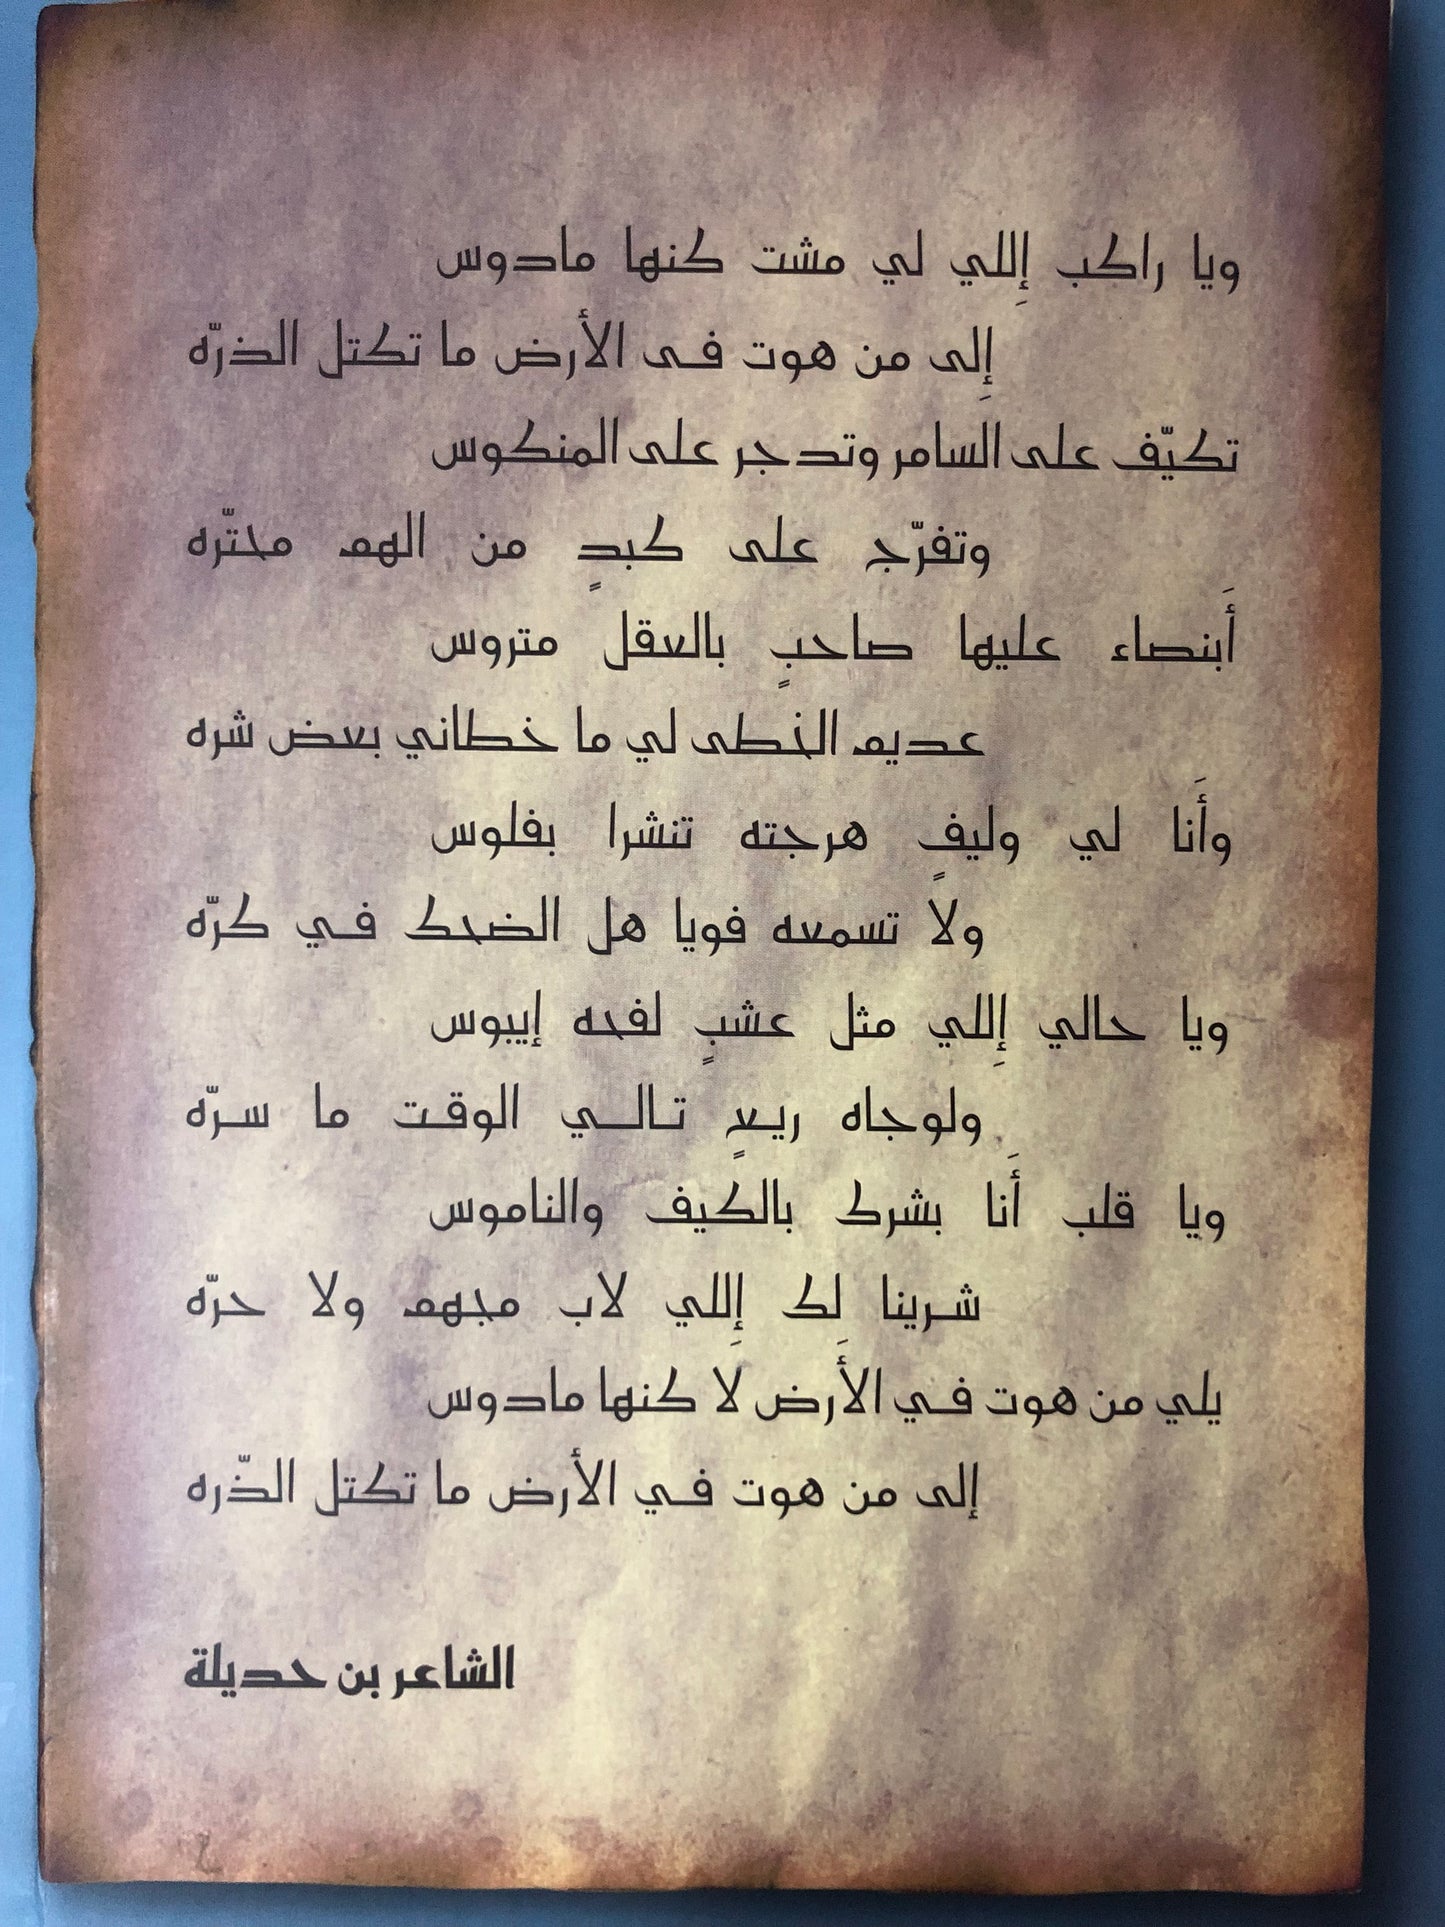 ويا راكب إِللي لي مشت كنها مادوس
إِلى من هوت فى الأرض ما تكتل الذرّه
تكيّف على السامر وتدجر على المنكوس
وتفرّج على كبدٍ من الهم محترّه
أَبنصاء عليها صاحبٍ بالعقل متروس
عديم الخطى لي ما خطاني بعض شره
وأَنا لي وليفٍ هرجته تنشرا بفلوس
ولا تسمعه فويا هل الضحك في كرّه
ويا حالي إِللي مثل عشبٍ لفحه إيبوس
ولوجاه ريعٍ تالي الوقت ما سرّه
ويا قلب أَنا بشرك بالكيف والناموس
شرينا لك إِللي لاب مجهم ولا حرّه
يلي من هوت في الأَرض لا كنها مادوس
إلى من هوت في الأرض ما تكتل الذّره
الشاعر بن حديلة